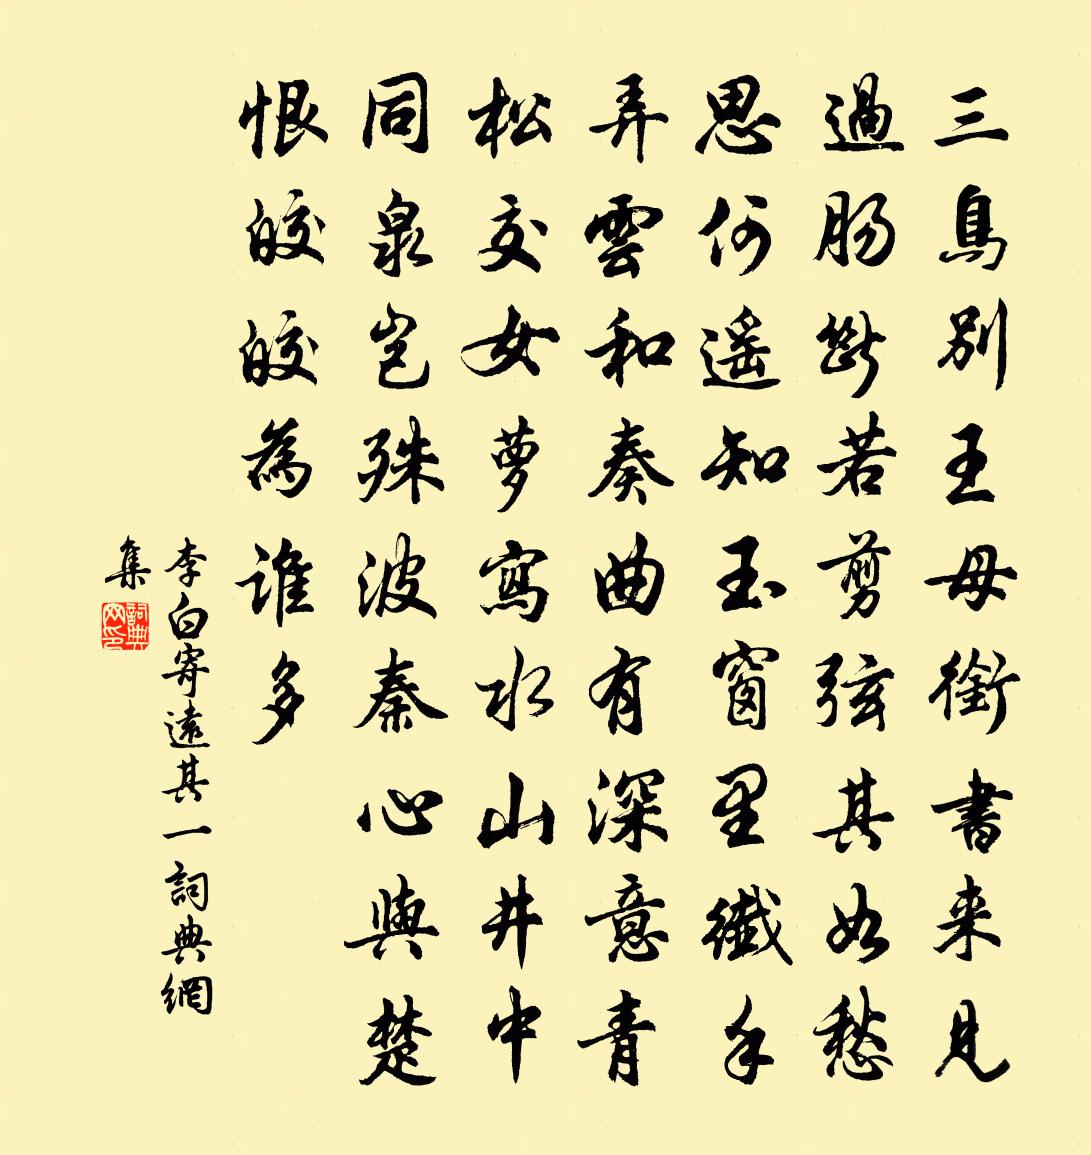 三鳥別王母銜書来見
過肠斷若剪弦其如愁
思何遥知玉窗里纖手
弄雲和奏曲有深意青
松交女萝寫水山井中
同泉豈殊波秦心與楚
恨皎皎為誰多
李白寄遠其一詞典網
集
詞典网印